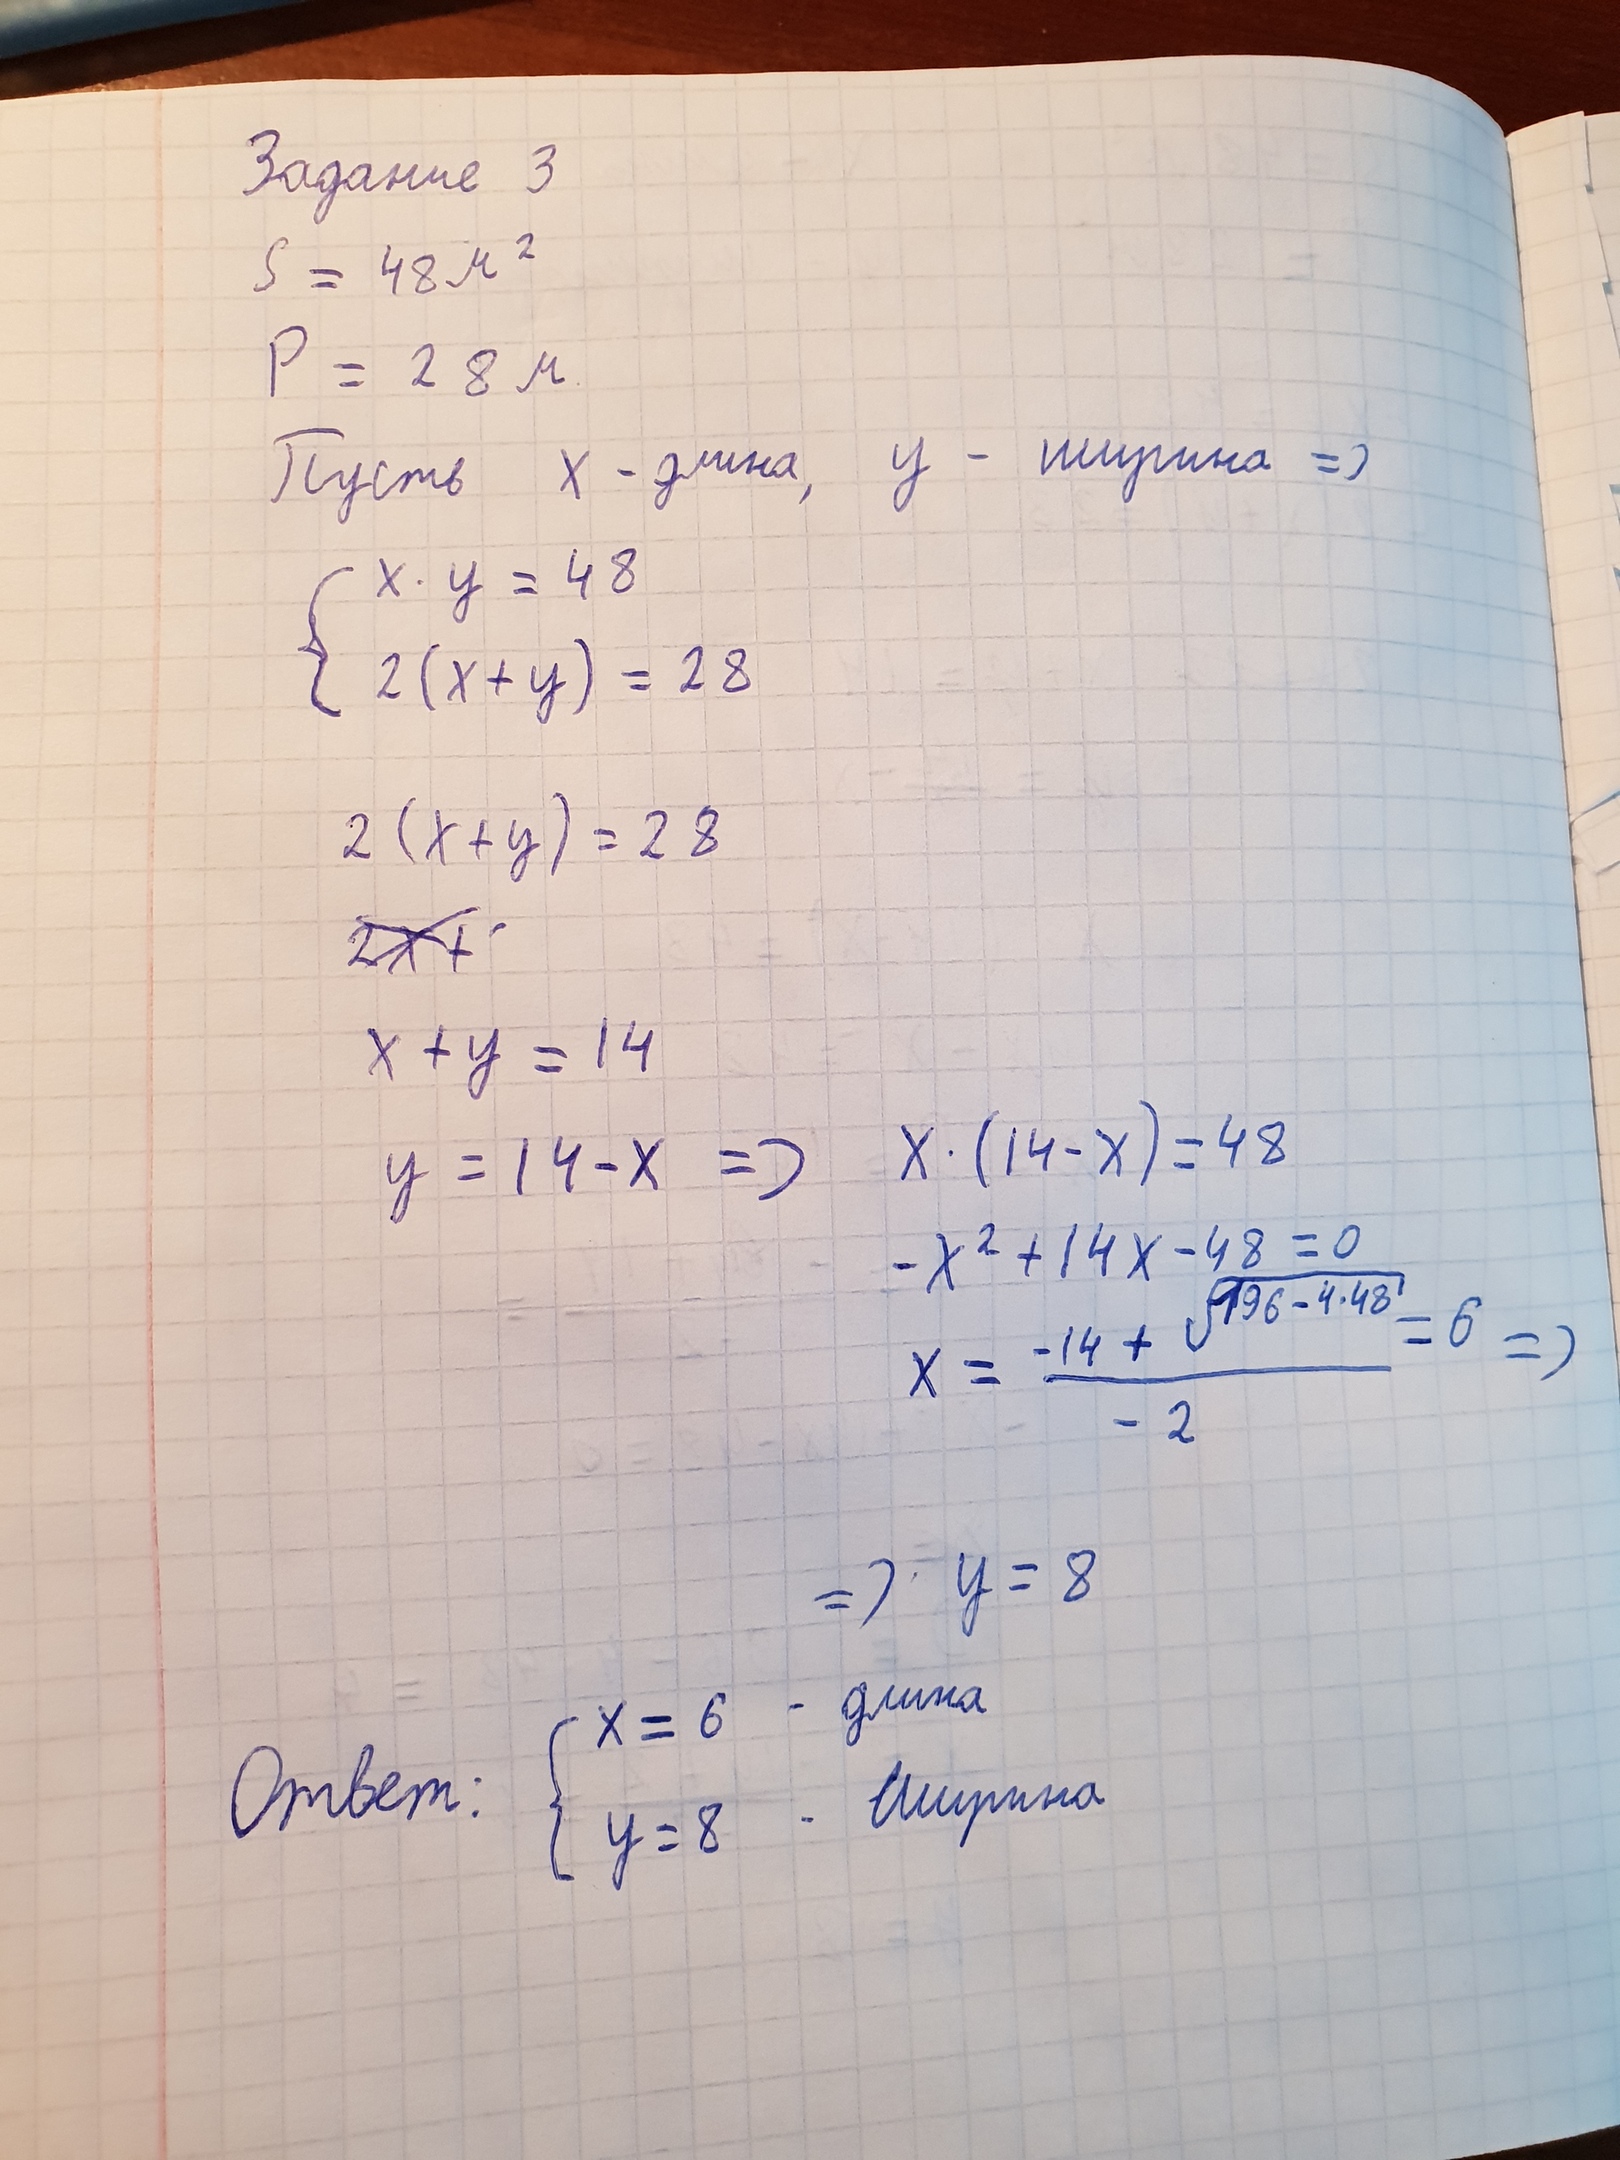 Задание 3
S = 48 м²
P = 28 м.
Пусть x - длина, y - ширина =>
{ x · y = 48
2(x+y) = 28
2(x+y) = 28
2x +
x + y = 14
y = 14-x => x·(14-x)=48
-x² + 14x - 48 = 0
x = (-14 + √(196-4·48)) / -2 = 6 =>
=> y = 8
Ответ: { x = 6 - длина
y = 8 - Ширина